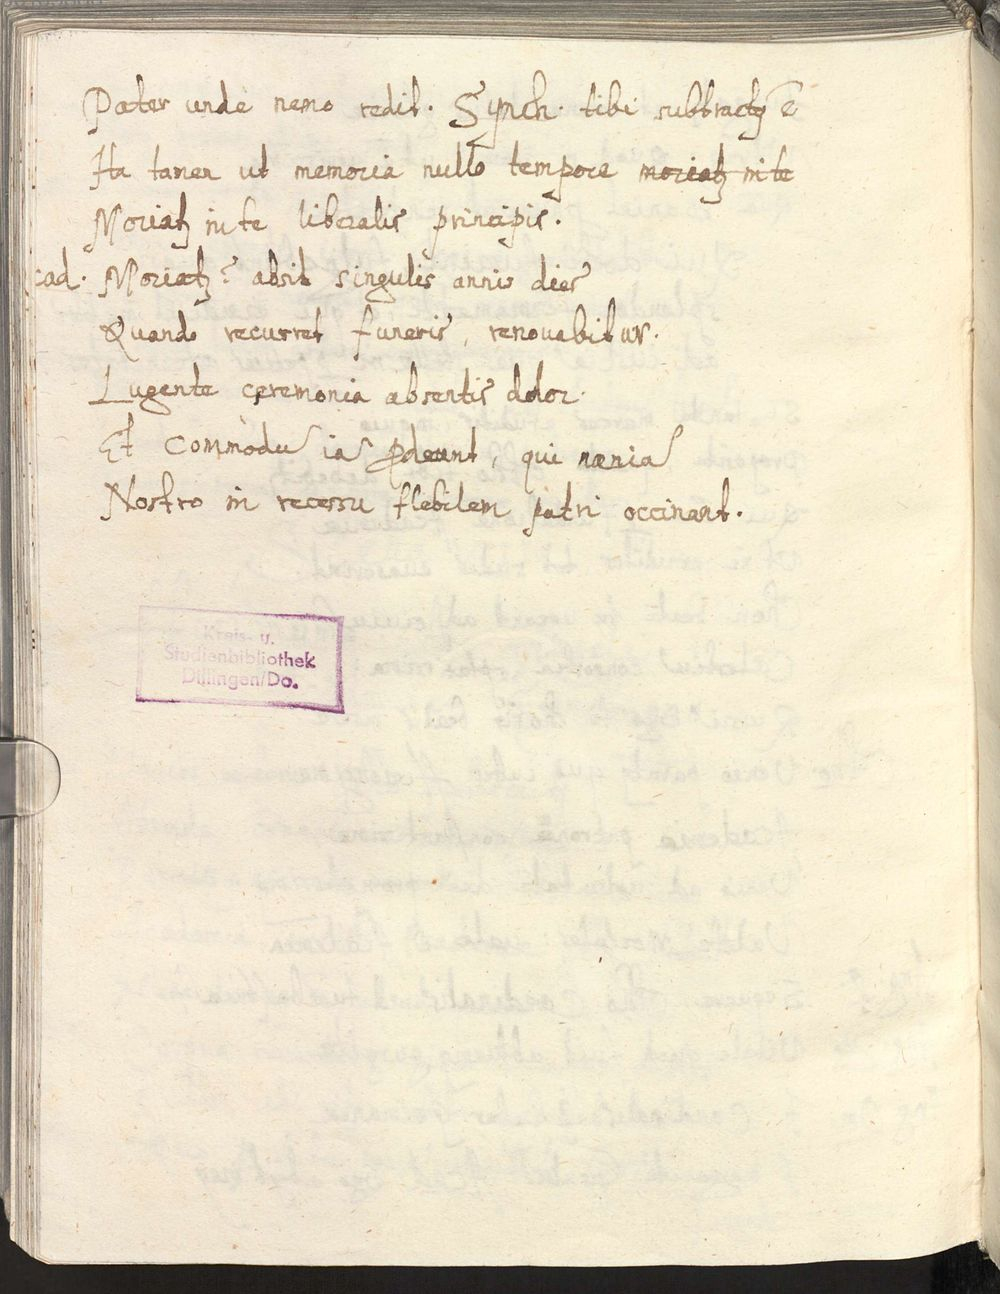 Pater unde nemo redit. Synch. tibi subtractꝫ ē
Ita tamen ut memoria nullo tempore moriatꝫ in te
Moriatꝫ in te liberalis principis.
cad. Moriatꝫ? absit singulis annis dies
Quando recurret funeris, renovabitur.
Lugente ceremonia absentis dolor.
Et commodū iā ꝓdeunt, qui nænia
Nostro in recessu flebilem patri occinant.
Kreis- u.
Studienbibliothek
Dillingen/Do.